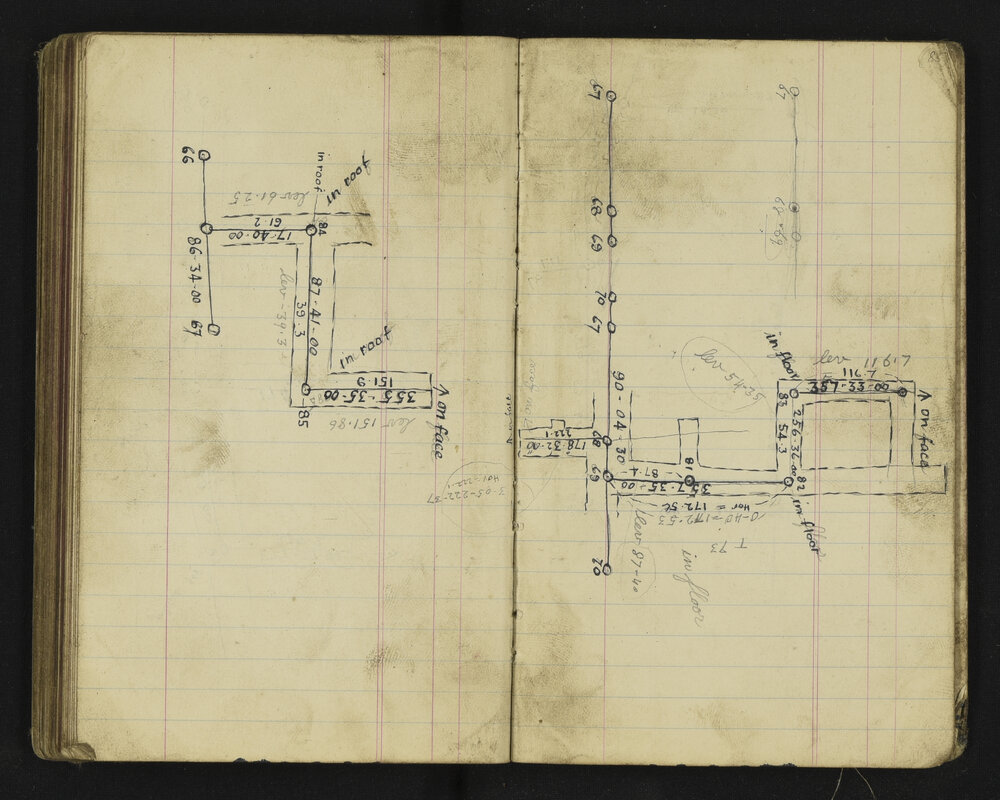 66
86-34-00
67
lev 61.25
61.2
17-40-00
in roof
in roof
84
87-41-00
39.3
lev-39.3
in roof
151.9
355-35-00
85
lev 151.86
↑ on face
3-05-222.37
Hor=222.1
67
68
69
70
67
90-04-30
68
222.1
178-32-00
69
87.4
357-35-00
81
Hor = 172.5
0-40=172.53
T 73
lev 87-40
in floor
70
67
68
69
lev 54.35
in floor
83
256-36-00
54.3
82
in floor
lev 119.7
119.7
357-33-00
↑ on face